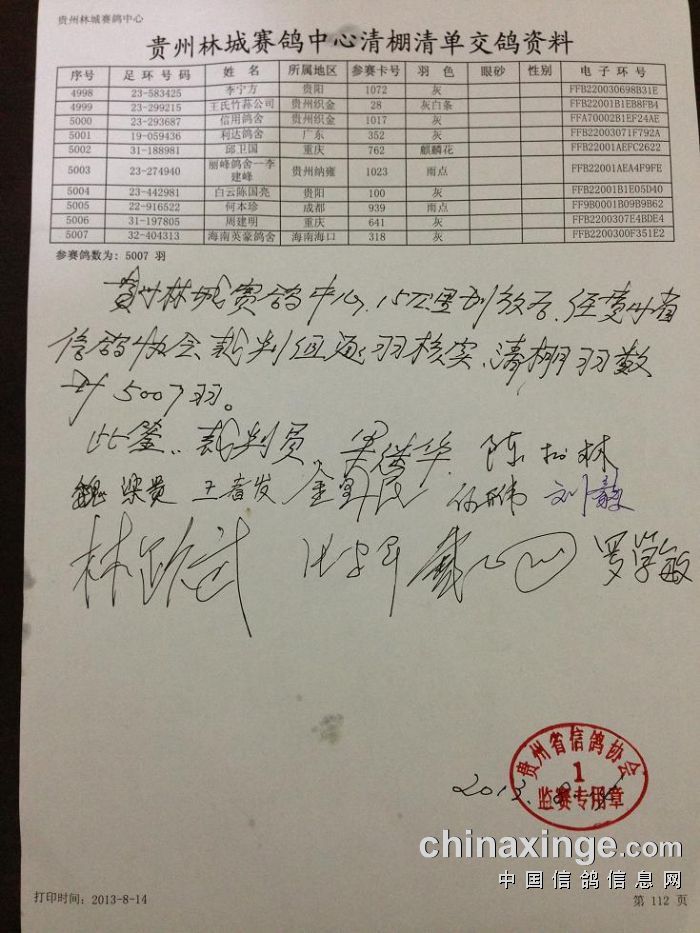 贵州林城赛鸽中心
贵州林城赛鸽中心清棚清单交鸽资料
序号 足环号码 姓名 所属地区 参赛卡号 羽色 眼砂 性别 电子环号
4998 23-583425 李宁方 贵阳 1072 灰 FFB220030698B31E
4999 23-299215 王氏竹荪公司 贵州织金 28 灰白条 FFB22001B1EB8FB4
5000 23-293687 信用鸽舍 贵州织金 1017 灰 FFA70002B1EF24AE
5001 19-059436 利达鸽舍 广东 352 灰 FFB22003071F792A
5002 31-188981 邱卫国 重庆 762 麒麟花 FFB22001AEFC2622
5003 23-274940 丽峰鸽舍—李建峰 贵州纳雍 1023 雨点 FFB22001AEA4F9FE
5004 23-442981 白云陈国亮 贵阳 100 灰 FFB22001B1E05D40
5005 22-916522 何本珍 成都 939 雨点 FF9B0001B09B9B62
5006 31-197805 周建明 重庆 641 灰 FFB2200307E4BDE4
5007 32-404313 海南英豪鸽舍 海南海口 318 灰 FFB2200300F351E2
参赛鸽数为: 5007 羽
贵州林城赛鸽中心,15公里训放后,经贵州省
信鸽协会裁判组逐羽核实,清棚羽数
为5007羽。
此签:裁判员 陈松林
魏荣贵 王者发 刘毅
罗学敏
贵州省信鸽协会
1
监赛专用章
2013.
chinaxinge.com
中国信鸽信息网
打印时间: 2013-8-14 第 112 页